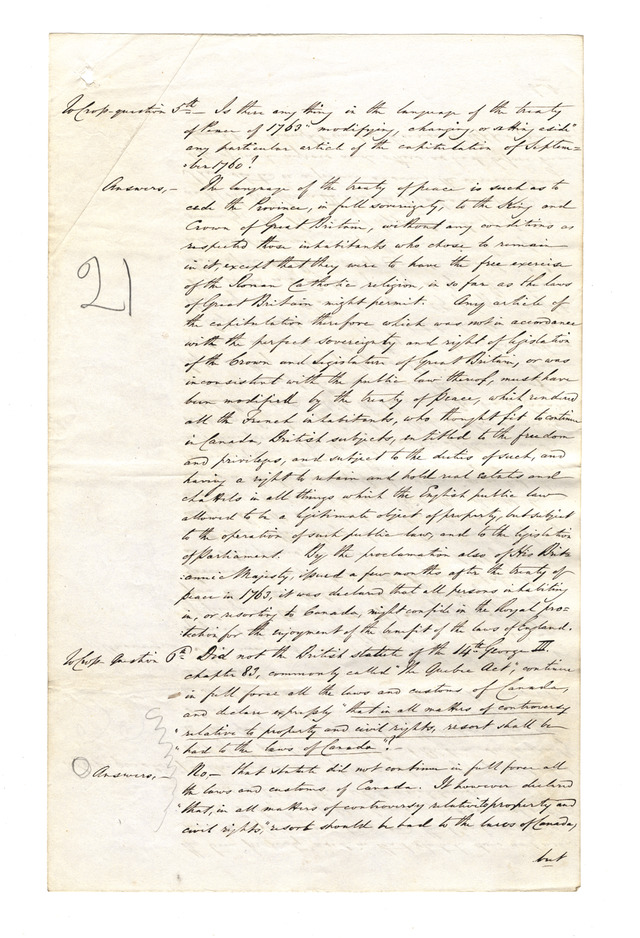 To Cross-question 5th — Is there any thing in the language of the treaty
of Peace of 1763 "modifying, changing, or setting aside"
any particular article of the capitulation of Septem=
=ber 1760?
Answers, — The language of the treaty of peace is such as to
cede the Province, in full sovereignty, to the King and
Crown of Great Britain, without any conditions as
respected those inhabitants who chose to remain
in it, except that they were to have the free exercise
of the Roman Catholic religion, in so far as the laws
21
of Great Britain might permit. Any article of
the capitulation therefore which was not in accordance
with the perfect sovereignty and right of legislation
of the Crown and Legislature of Great Britain, or was
inconsistent with the public law thereof, must have
been modified by the treaty of Peace, which rendered
all the French inhabitants, who thought fit to continue
in Canada, British subjects, entitled to the freedom
and privileges, and subject to the duties of such, and
having a right to retain and hold real estates and
chattels in all things which the English public law
allowed to be a legitimate object of property, but subject
to the operation of such public law, and to the legislation
of Parliament. By the proclamation also of His Brit=
=annic Majesty, issued a few months after the treaty of
peace in 1763, it was declared that all persons inhabiting
in, or resorting to Canada, might confide in the Royal pro=
=tection for the enjoyment of the benefit of the laws of England.
To Cross-Question 6th Did not the British statute of the 14th George III.
chapter 83, commonly called "the Quebec Act", continue
in full force all the laws and customs of Canada,
and declare expressly "that in all matters of controversy
"relative to property and civil rights, resort shall be
"had to the laws of Canada"? —
Answers, — No, — that statute did not continue in full force all
the laws and customs of Canada. It however declared
"that, in all matters of controversy relative to property and
civil rights," resort should be had to the laws of Canada,
but